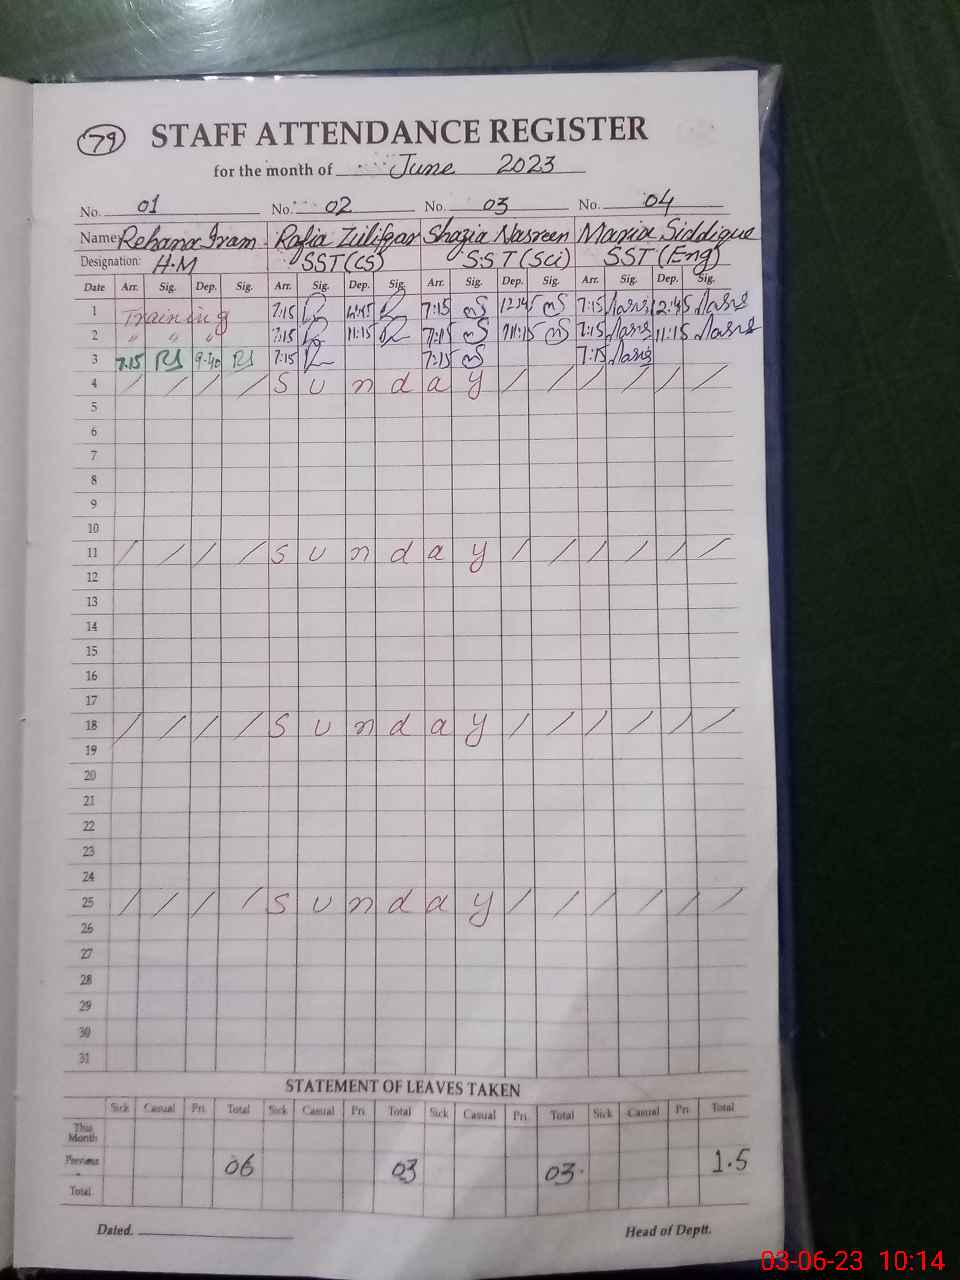 79 STAFF ATTENDANCE REGISTER
for the month of June 2023
No. 01 No. 02 No. 03 No. 04
Name Rehana Iram Rafia Zulifqar Shazia Nasreen Maria Siddique
Designation: H.M SST(CS) S.S.T (Sci) SST (Eng)
Date Arr. Sig. Dep. Sig. Arr. Sig. Dep. Sig. Arr. Sig. Dep. Sig. Arr. Sig. Dep. Sig.
1 Training 7:15 12:45 7:15 12:45 7:15 12:45
2 " " " 7:15 11:15 7:15 11:15 7:15 11:15
3 7:15 9:40 7:15 7:15 7:15
4 / / / / S u n d a y / / / / / /
5
6
7
8
9
10
11 / / / / S u n d a y / / / / / /
12
13
14
15
16
17
18 / / / / S u n d a y / / / / / /
19
20
21
22
23
24
25 / / / / S u n d a y / / / / / /
26
27
28
29
30
31
STATEMENT OF LEAVES TAKEN
Sick Casual Pri. Total Sick Casual Pri. Total Sick Casual Pri. Total Sick Casual Pri. Total
This Month
Previous 06 03 03. 1.5
Total
Dated. Head of Deptt.
03-06-23 10:14